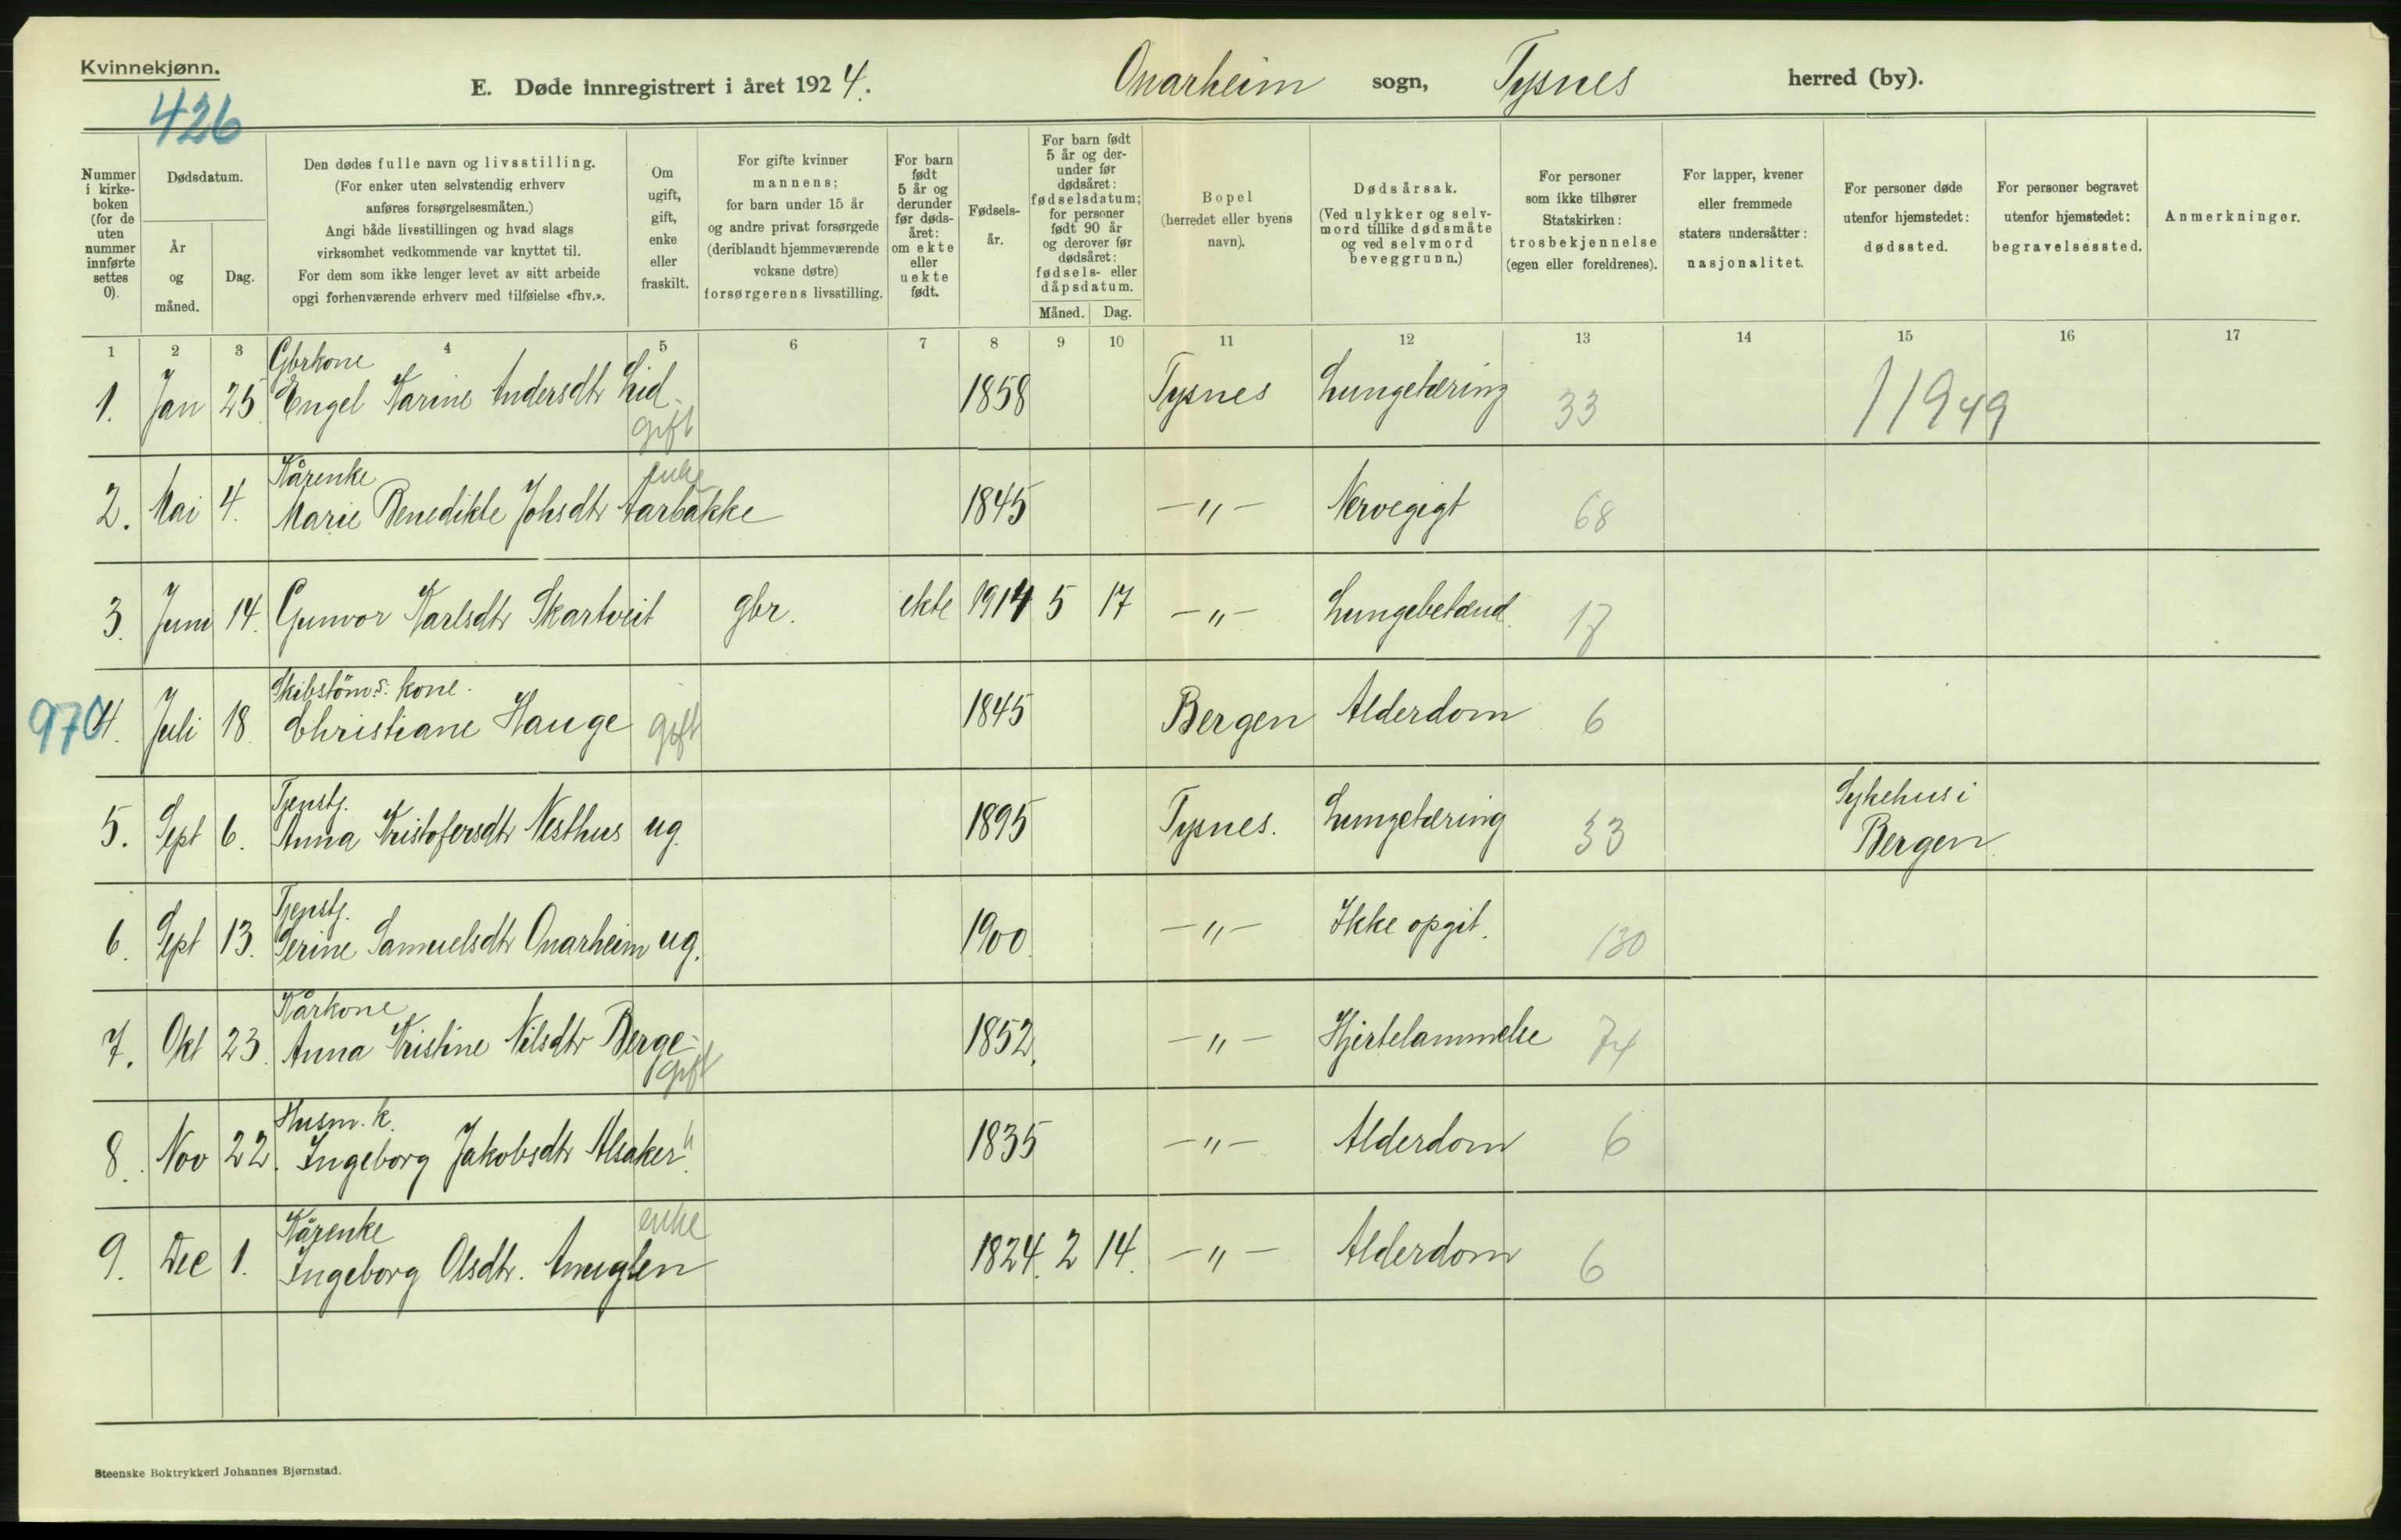 Kvinnekjønn.
E. Døde innregistrert i året 1924. Onarheim sogn, Tysnes herred (by).
426
Nummer i kirkeboken (for de uten nummer innførte settes 0).
Dødsdatum.
År og måned.
Dag.
Den dødes fulle navn og livsstilling.
(For enker uten selvstendig erhverv
anføres forsørgelsesmåten.)
Angi både livsstillingen og hvad slags
virksomhet vedkommende var knyttet til.
For dem som ikke lenger levet av sitt arbeide
opgi forhenværende erhverv med tilføielse «fhv.».
Om ugift, gift, enke eller fraskilt.
For gifte kvinner
mannens;
for barn under 15 år
og andre privat forsørgede
(deriblandt hjemmeværende
voksne døtre)
forsørgerens livsstilling.
For barn født 5 år og derunder før dødsåret: om ekte eller uekte født.
Fødselsår.
For barn født 5 år og derunder før dødsåret: fødselsdatum; for personer født 90 år og derover før dødsåret: fødsels- eller dåpsdatum.
Måned. Dag.
Bopel
(herredet eller byens
navn).
Dødsårsak.
(Ved ulykker og selv-
mord tillike dødsmåte
og ved selvmord
beveggrunn.)
For personer
som ikke tilhører
Statskirken:
trosbekjennelse
(egen eller foreldrenes).
For lapper, kvener
eller fremmede
staters undersåtter:
nasjonalitet.
For personer døde
utenfor hjemstedet:
dødssted.
For personer begravet
utenfor hjemstedet:
begravelsessted.
Anmerkninger.
1 2 3 4 5 6 7 8 9 10 11 12 13 14 15 16 17
Gbrkone
1. Jan 25 Engel Karine Andersdtr Lid 1858 Tysnes Lungetæring 33 11949
gift
Kårenke enke
2. Mai 4. Marie Benedikte Johsdtr Aarbakke 1845 —"— Nervegigt 68
3. Juni 14. Gunvor Karlsdtr Skartveit gbr. ekte 1914 5 17 —"— Lungebetænd. 17
Skibstöm.s. kone.
970 4. Juli 18. Christiane Hauge gift 1845 Bergen Alderdom 6
Tjenstj. Sykehus i
5. Sept 6. Anna Kristofersdtr Nesthus ug. 1895 Tysnes. Lungetæring 33 Bergen
Tjenstj.
6. Sept 13. Serine Samuelsdtr Onarheim ug. 1900 —"— Ikke opgit. 130
Kårkone
7. Okt 23. Anna Kristine Nilsdtr Berge 1852. —"— Hjertelammelse 74
gift
Husm. k.
8. Nov 22. Ingeborg Jakobsdtr Alsaker 1835 —"— Alderdom 6
Kårenke enke
9. Dec 1. Ingeborg Olsdtr. Anuglen 1824. 2 14. —"— Alderdom 6
Steenske Boktrykkeri Johannes Bjørnstad.